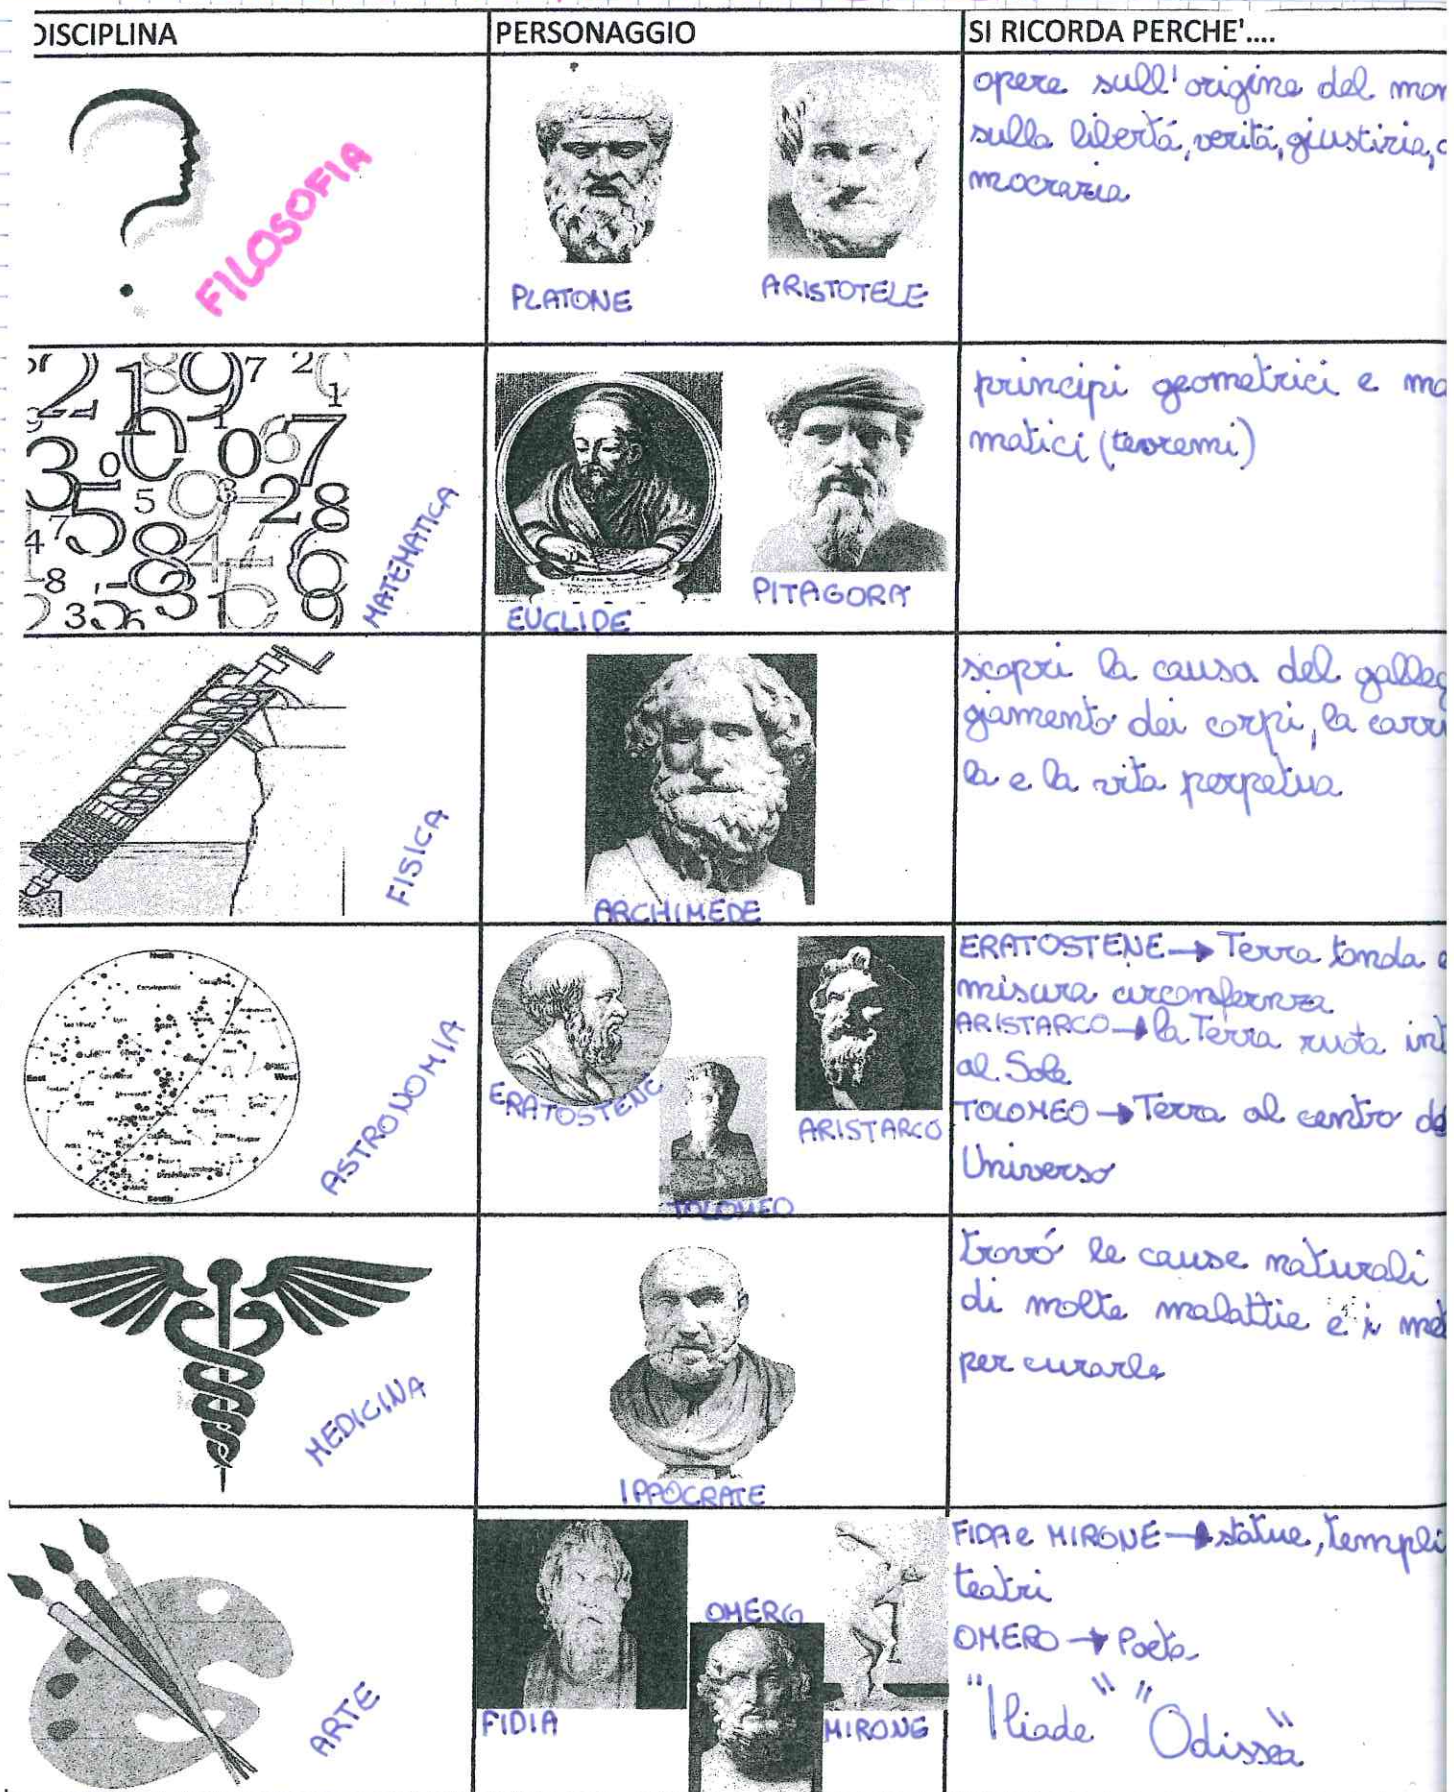 DISCIPLINA
PERSONAGGIO
SI RICORDA PERCHE'....
FILOSOFIA
PLATONE
ARISTOTELE
opere sull'origine del mon
sulla libertá, veritá, giustizia, d
mocrazia
MATEMATICA
EUCLIDE
PITAGORA
principi geometrici e ma
matici (teoremi)
FISICA
ARCHIMEDE
scopri la causa del galleg
giamento dei corpi, la carru
la e la vita perpetua
ASTRONOMIA
North
East
West
South
ERATOSTENE
TOLOMEO
ARISTARCO
ERATOSTENE → Terra tonda e
misura circonfernza
ARISTARCO → la Terra ruota int
al Sole
TOLOMEO → Terra al centro de
Universo
MEDICINA
IPPOCRATE
trovó le cause naturali
di molte malattie e i met
per curarle
ARTE
FIDIA
OMERO
MIRONE
FIDA e MIRONE → statue, templi
teatri
OMERO → Poeta
"Iliade" "Odissea"